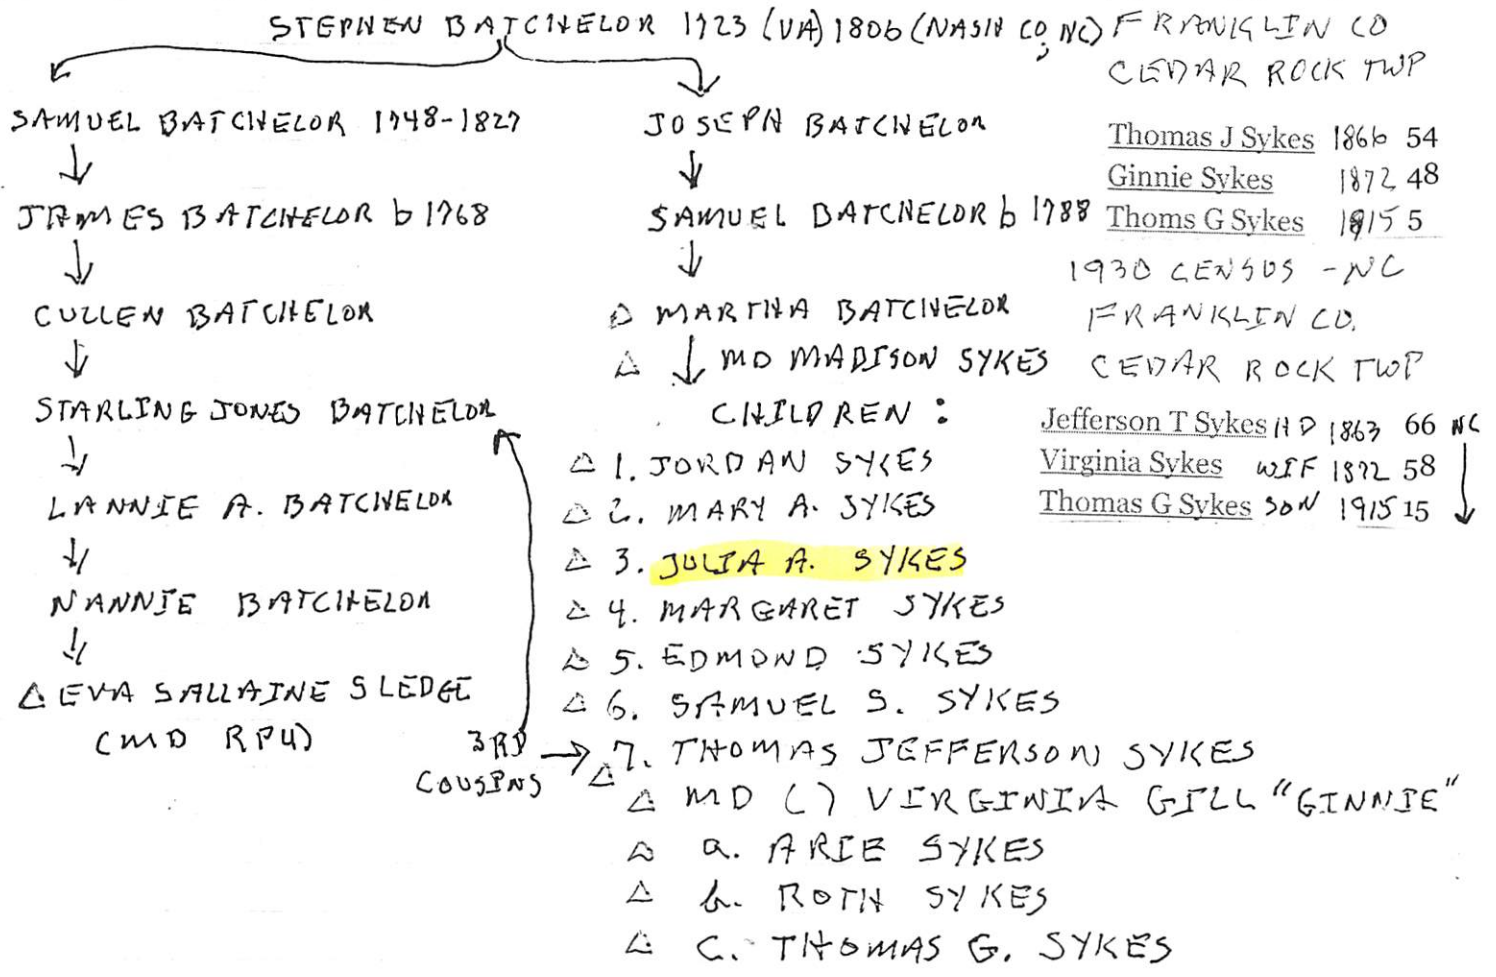 STEPHEN BATCHELOR 1723 (VA) 1806 (NASH CO, NC)
SAMUEL BATCHELOR 1748-1827
JAMES BATCHELOR b 1768
CULLEN BATCHELOR
STARLING JONES BATCHELOR
LANNIE A. BATCHELOR
NANNIE BATCHELOR
Δ EVA SALLAINE SLEDGE
(MD RPU)
3RD
COUSINS
JOSEPH BATCHELOR
SAMUEL BATCHELOR b 1788
Δ MARTHA BATCHELOR
Δ MD MADISON SYKES
CHILDREN:
Δ 1. JORDAN SYKES
Δ 2. MARY A. SYKES
Δ 3. JULIA A. SYKES
Δ 4. MARGARET SYKES
Δ 5. EDMOND SYKES
Δ 6. SAMUEL S. SYKES
Δ 7. THOMAS JEFFERSON SYKES
Δ MD () VIRGINIA GILL "GINNIE"
Δ a. ARIE SYKES
Δ b. ROTH SYKES
Δ C. THOMAS G. SYKES
FRANKLIN CO
CEDAR ROCK TWP
Thomas J Sykes 1866 54
Ginnie Sykes 1872 48
Thoms G Sykes 1915 5
1930 CENSUS - NC
FRANKLIN CO.
CEDAR ROCK TWP
Jefferson T Sykes HD 1863 66 NC
Virginia Sykes WIF 1872 58
Thomas G Sykes SON 1915 15